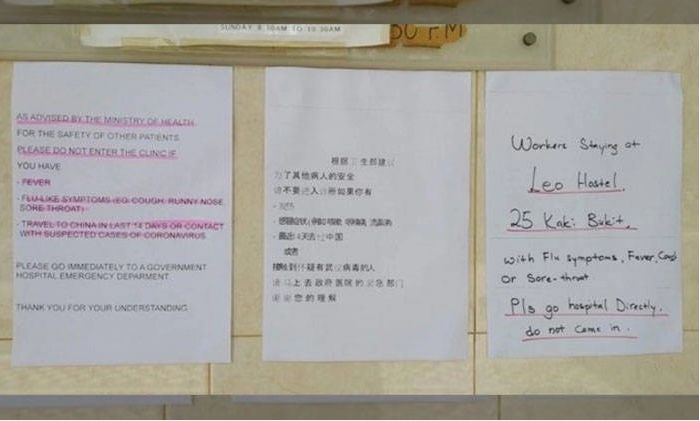 SUNDAY 8.30AM TO 10.30AM
AS ADVISED BY THE MINISTRY OF HEALTH
FOR THE SAFETY OF OTHER PATIENTS
PLEASE DO NOT ENTER THE CLINIC IF
YOU HAVE
- FEVER
- FLU-LIKE SYMPTOMS (EG. COUGH, RUNNY NOSE,
SORE THROAT)
- TRAVEL TO CHINA IN LAST 14 DAYS OR CONTACT
WITH SUSPECTED CASES OF CORONAVIRUS
PLEASE GO IMMEDIATELY TO A GOVERNMENT
HOSPITAL EMERGENCY DEPARMENT
THANK YOU FOR YOUR UNDERSTANDING
根据卫生部建议
为了其他病人的安全
请不要进入诊所如果你有
- 发烧
中国
或者
接触到怀疑有武汉病毒的人
请马上去政府医院的紧急部门
谢谢您的理解
Workers Staying at
Leo Hostel.
25 Kaki Bukit.
with Flu symptoms, Fever,
or Sore-throat
Pls go hospital Directly.
do not come in.